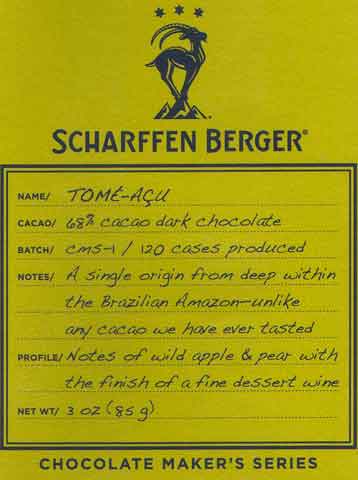 SCHARFFEN BERGER®
NAME/ TOMÉ-AÇU
CACAO/ 68% cacao dark chocolate
BATCH/ cms-1 / 120 cases produced
NOTES/ A single origin from deep within
the Brazilian Amazon-unlike
any cacao we have ever tasted
PROFILE/ Notes of wild apple & pear with
the finish of a fine dessert wine
NET WT/ 3 OZ (85 g)
CHOCOLATE MAKER'S SERIES